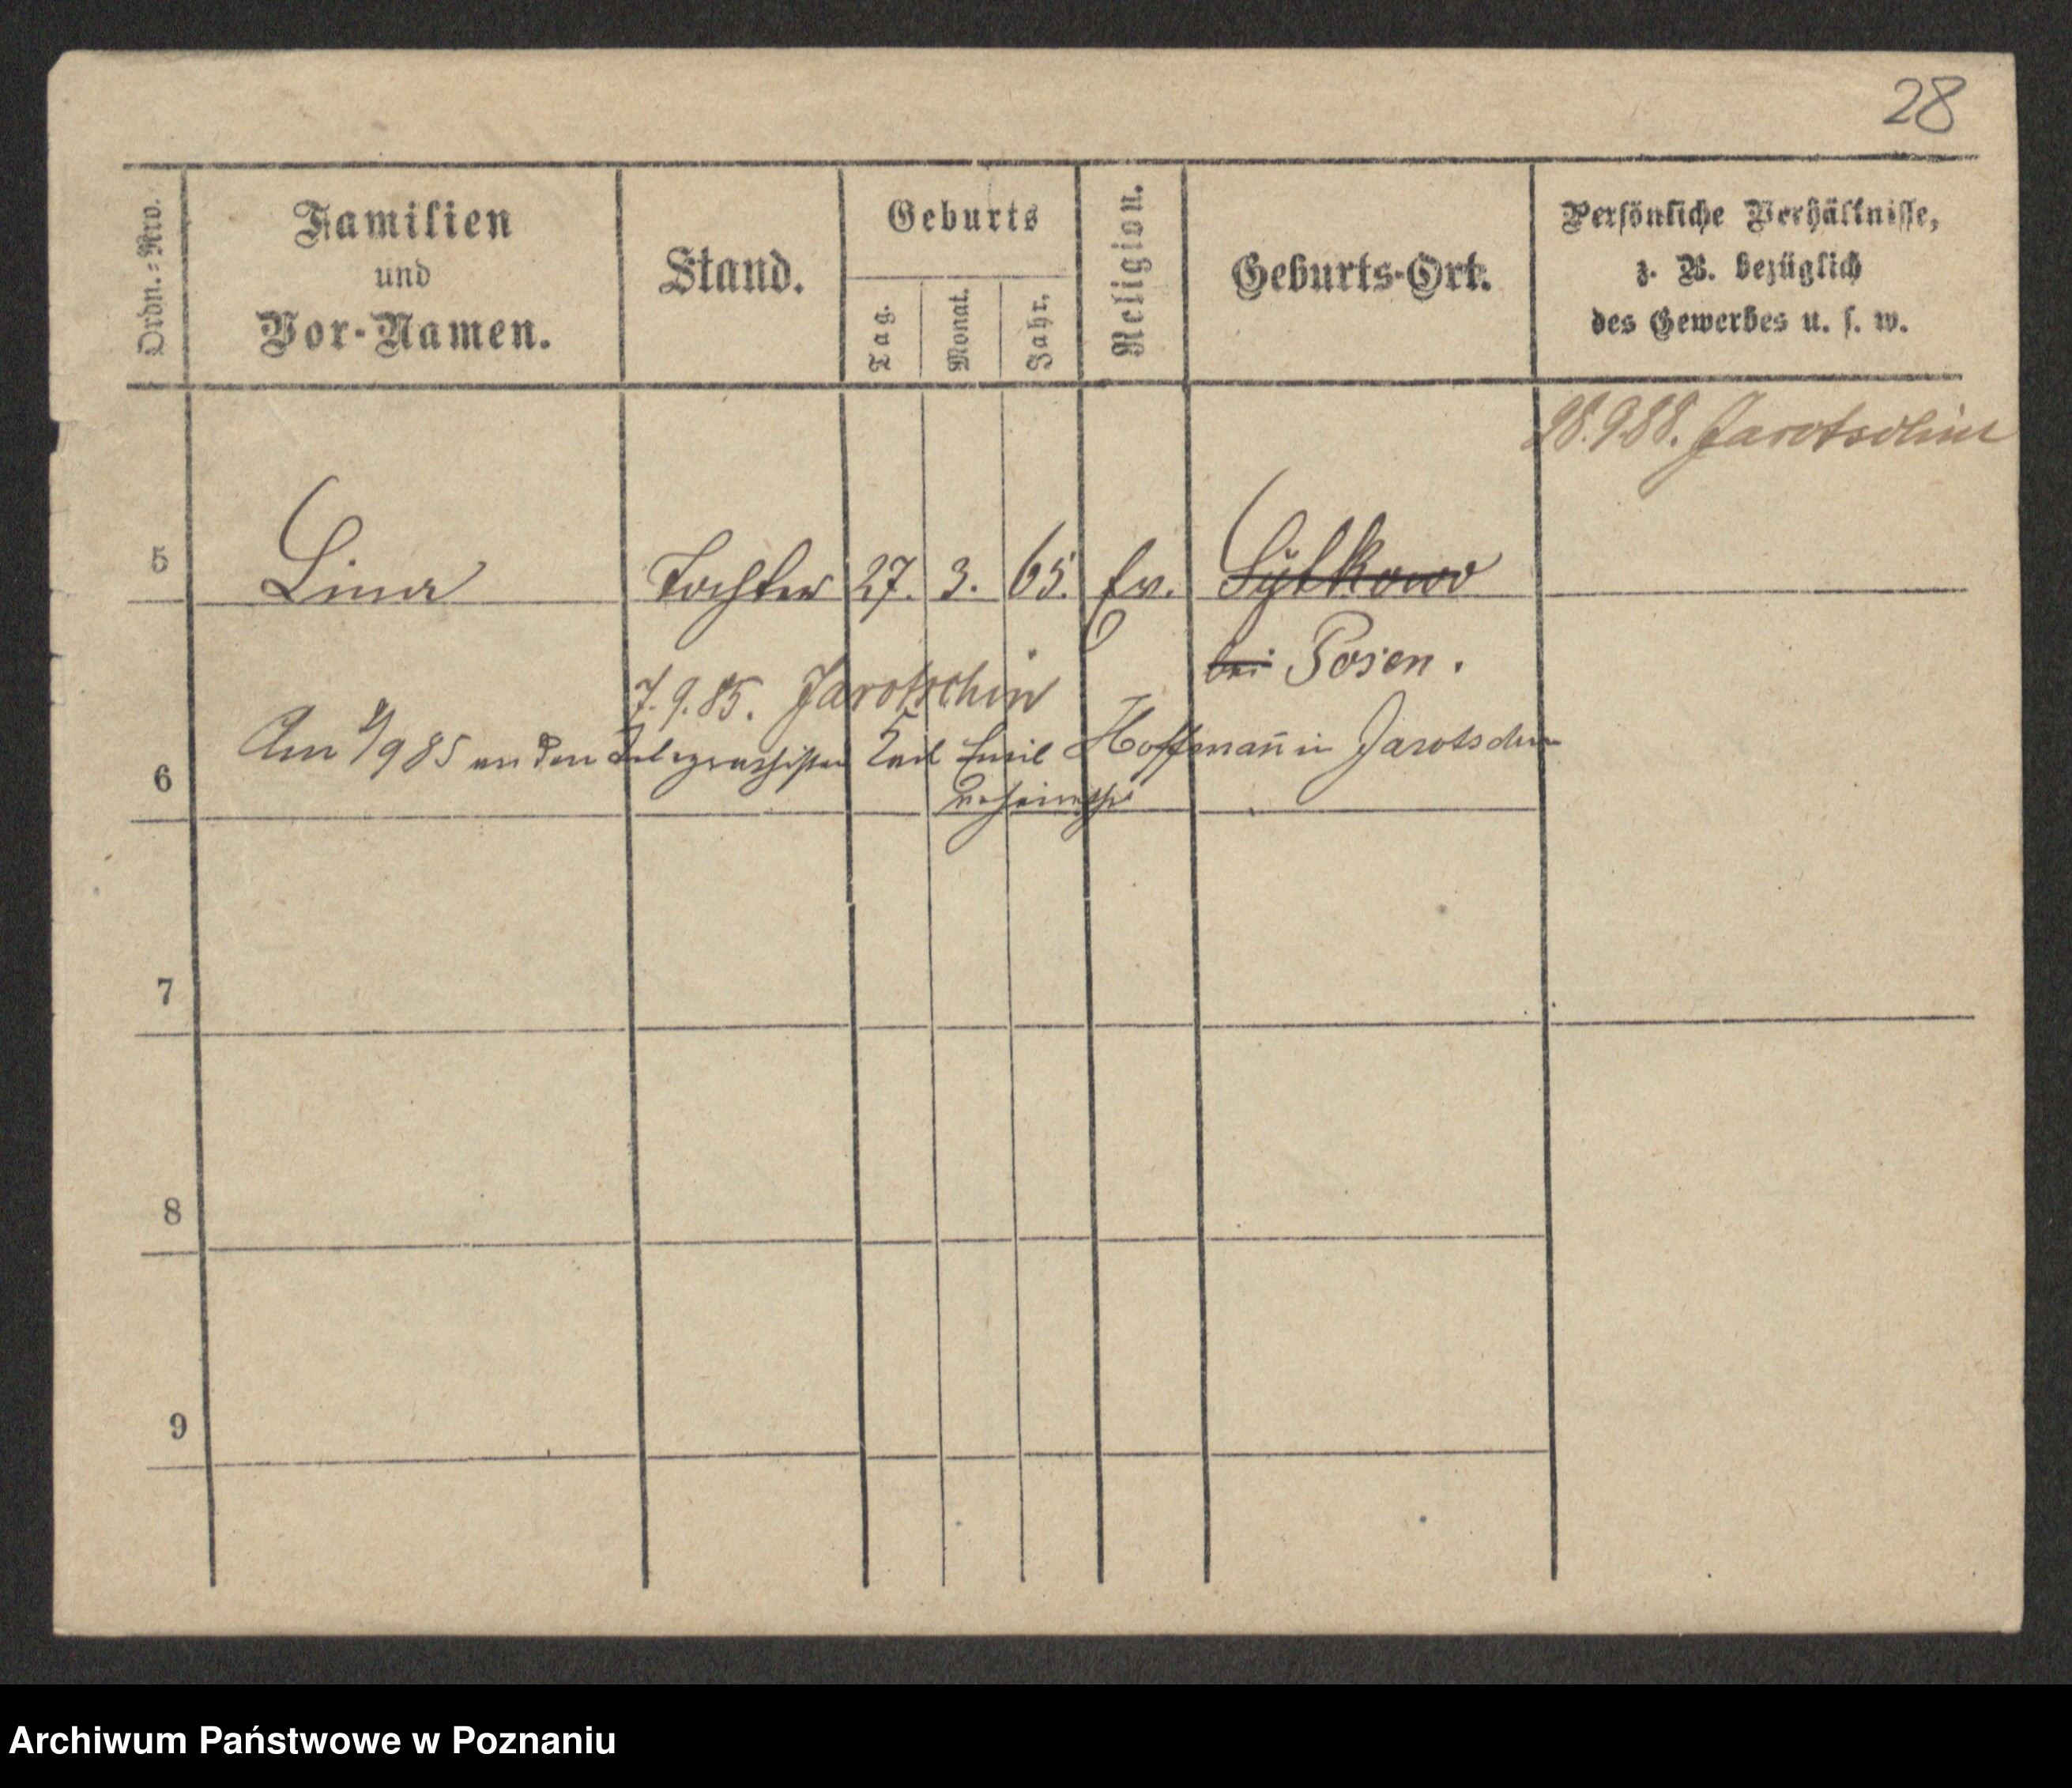 28
Ordn.=Nro.
Familien
und
Vor-Namen.
Stand.
Geburts
Tag.
Monat.
Jahr.
Religion.
Geburts-Ort.
Persönliche Verhältnisse,
z. B. bezüglich
des Gewerbes u. s. w.
28.9.88. Jarotschin
5 Lina Tochter 27. 3. 65. Ev.
bei Posen.
7.9.85. Jarotschin
6 Am 985 an den Telegraphisten Carl Emil Hoffman̄ in Jarotschin
verheirathet
7
8
9
Archiwum Państwowe w Poznaniu